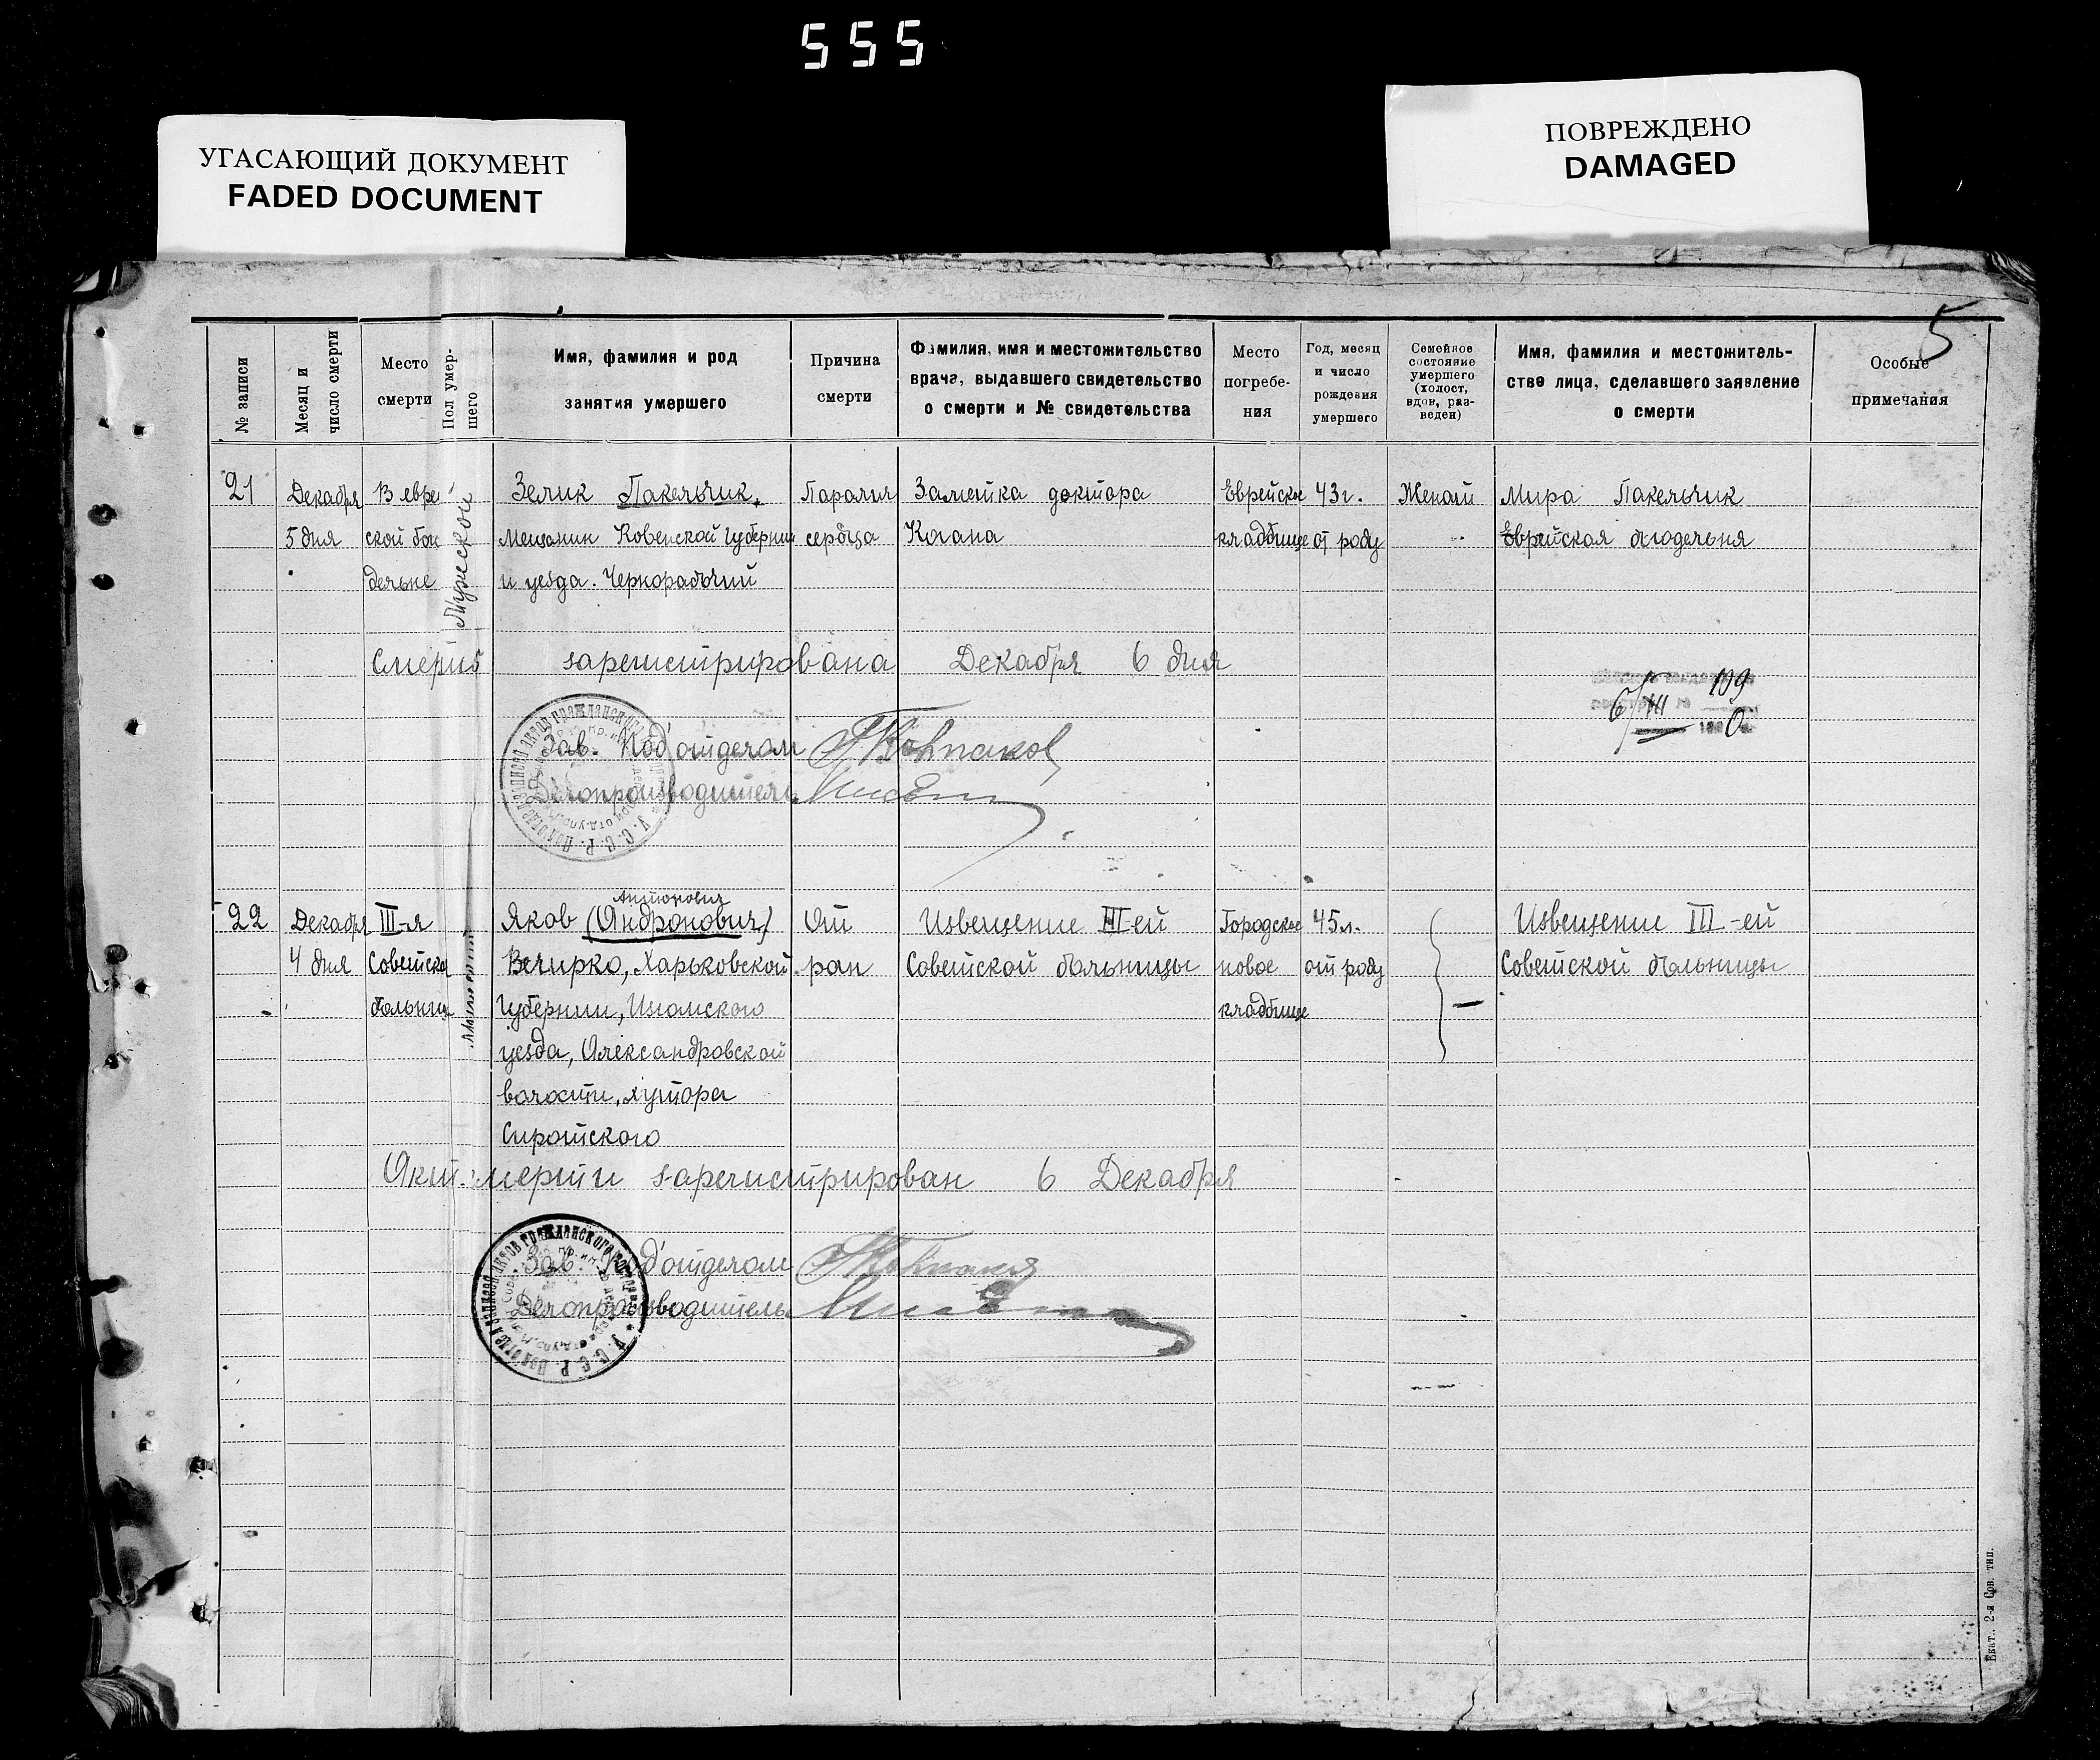 555
УГАСАЮЩИЙ ДОКУМЕНТ
FADED DOCUMENT
ПОВРЕЖДЕНО
DAMAGED
5
№ записи
Месяц и число смерти
Место смерти
Пол умер-шего
Имя, фамилия и род занятия умершего
Причина смерти
Фамилия, имя и местожительство врача, выдавшего свидетельство о смерти и № свидетельства
Место погребе-ния
Год, месяц и число рождения умершего
Семейное состояние умершего (холост, вдов, раз-веден)
Имя, фамилия и местожитель-ство лица, сделавшего заявление о смерти
Особые примечания
21
Декабря
5 дня
В еврей
ской бога
дельне
Мужской
Зелик Пакельчик,
Мещанин Ковенской Губернии
и уезда. Чернорабочий
Паралич
сердца
Заметка доктора
Когана
Еврейское
кладбище
43 г.
от роду
Женат
Мира Пакельчик
Еврейская богодельня
Смерть зарегистрирована Декабря 6 дня
Зав. Под'отделом
Делопроизводитель
6/XII 199
0
22
Декабря
4 дня
III-я
Советская
больница
Антонович
Яков (Андронович)
Величко, Харьковской
Губернии, Изюмского
уезда, Александровской
волости, хутора
Сиротского
От
ран
Извещение III-ей
Советской больницы
Городское
новое
кладбище
45 л.
от роду
—
Извещение III-ей
Советской больницы
Акт смерти зарегистрирован 6 Декабря
Зав. Под'отделом
Делопроизводитель
Екат., 2-я Сов. тип.